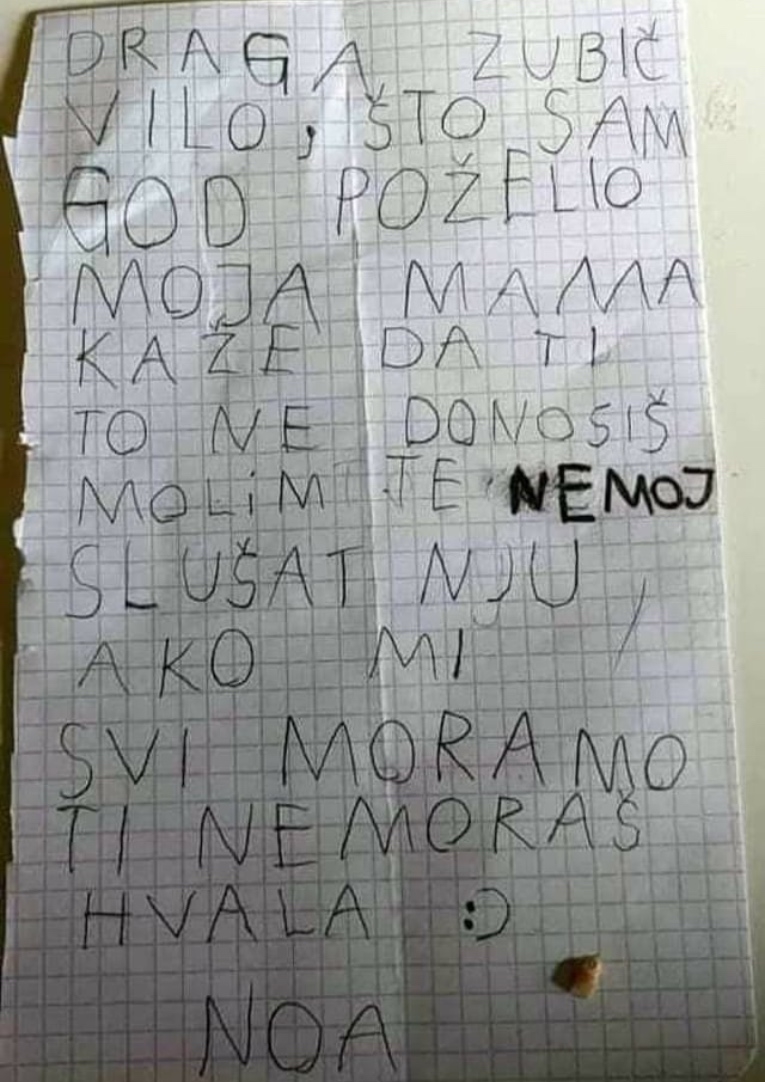 DRAGA ZUBIČ
VILO, ŠTO SAM
GOD POŽELIO
MOJA MAMA
KAŽE DA TI
TO NE DONOSIŠ
MOLiM TE NEMOJ
SLUŠAT NJU,
AKO MI
SVI MORAMO
TI NEMORAŠ
HVALA :)
NOA